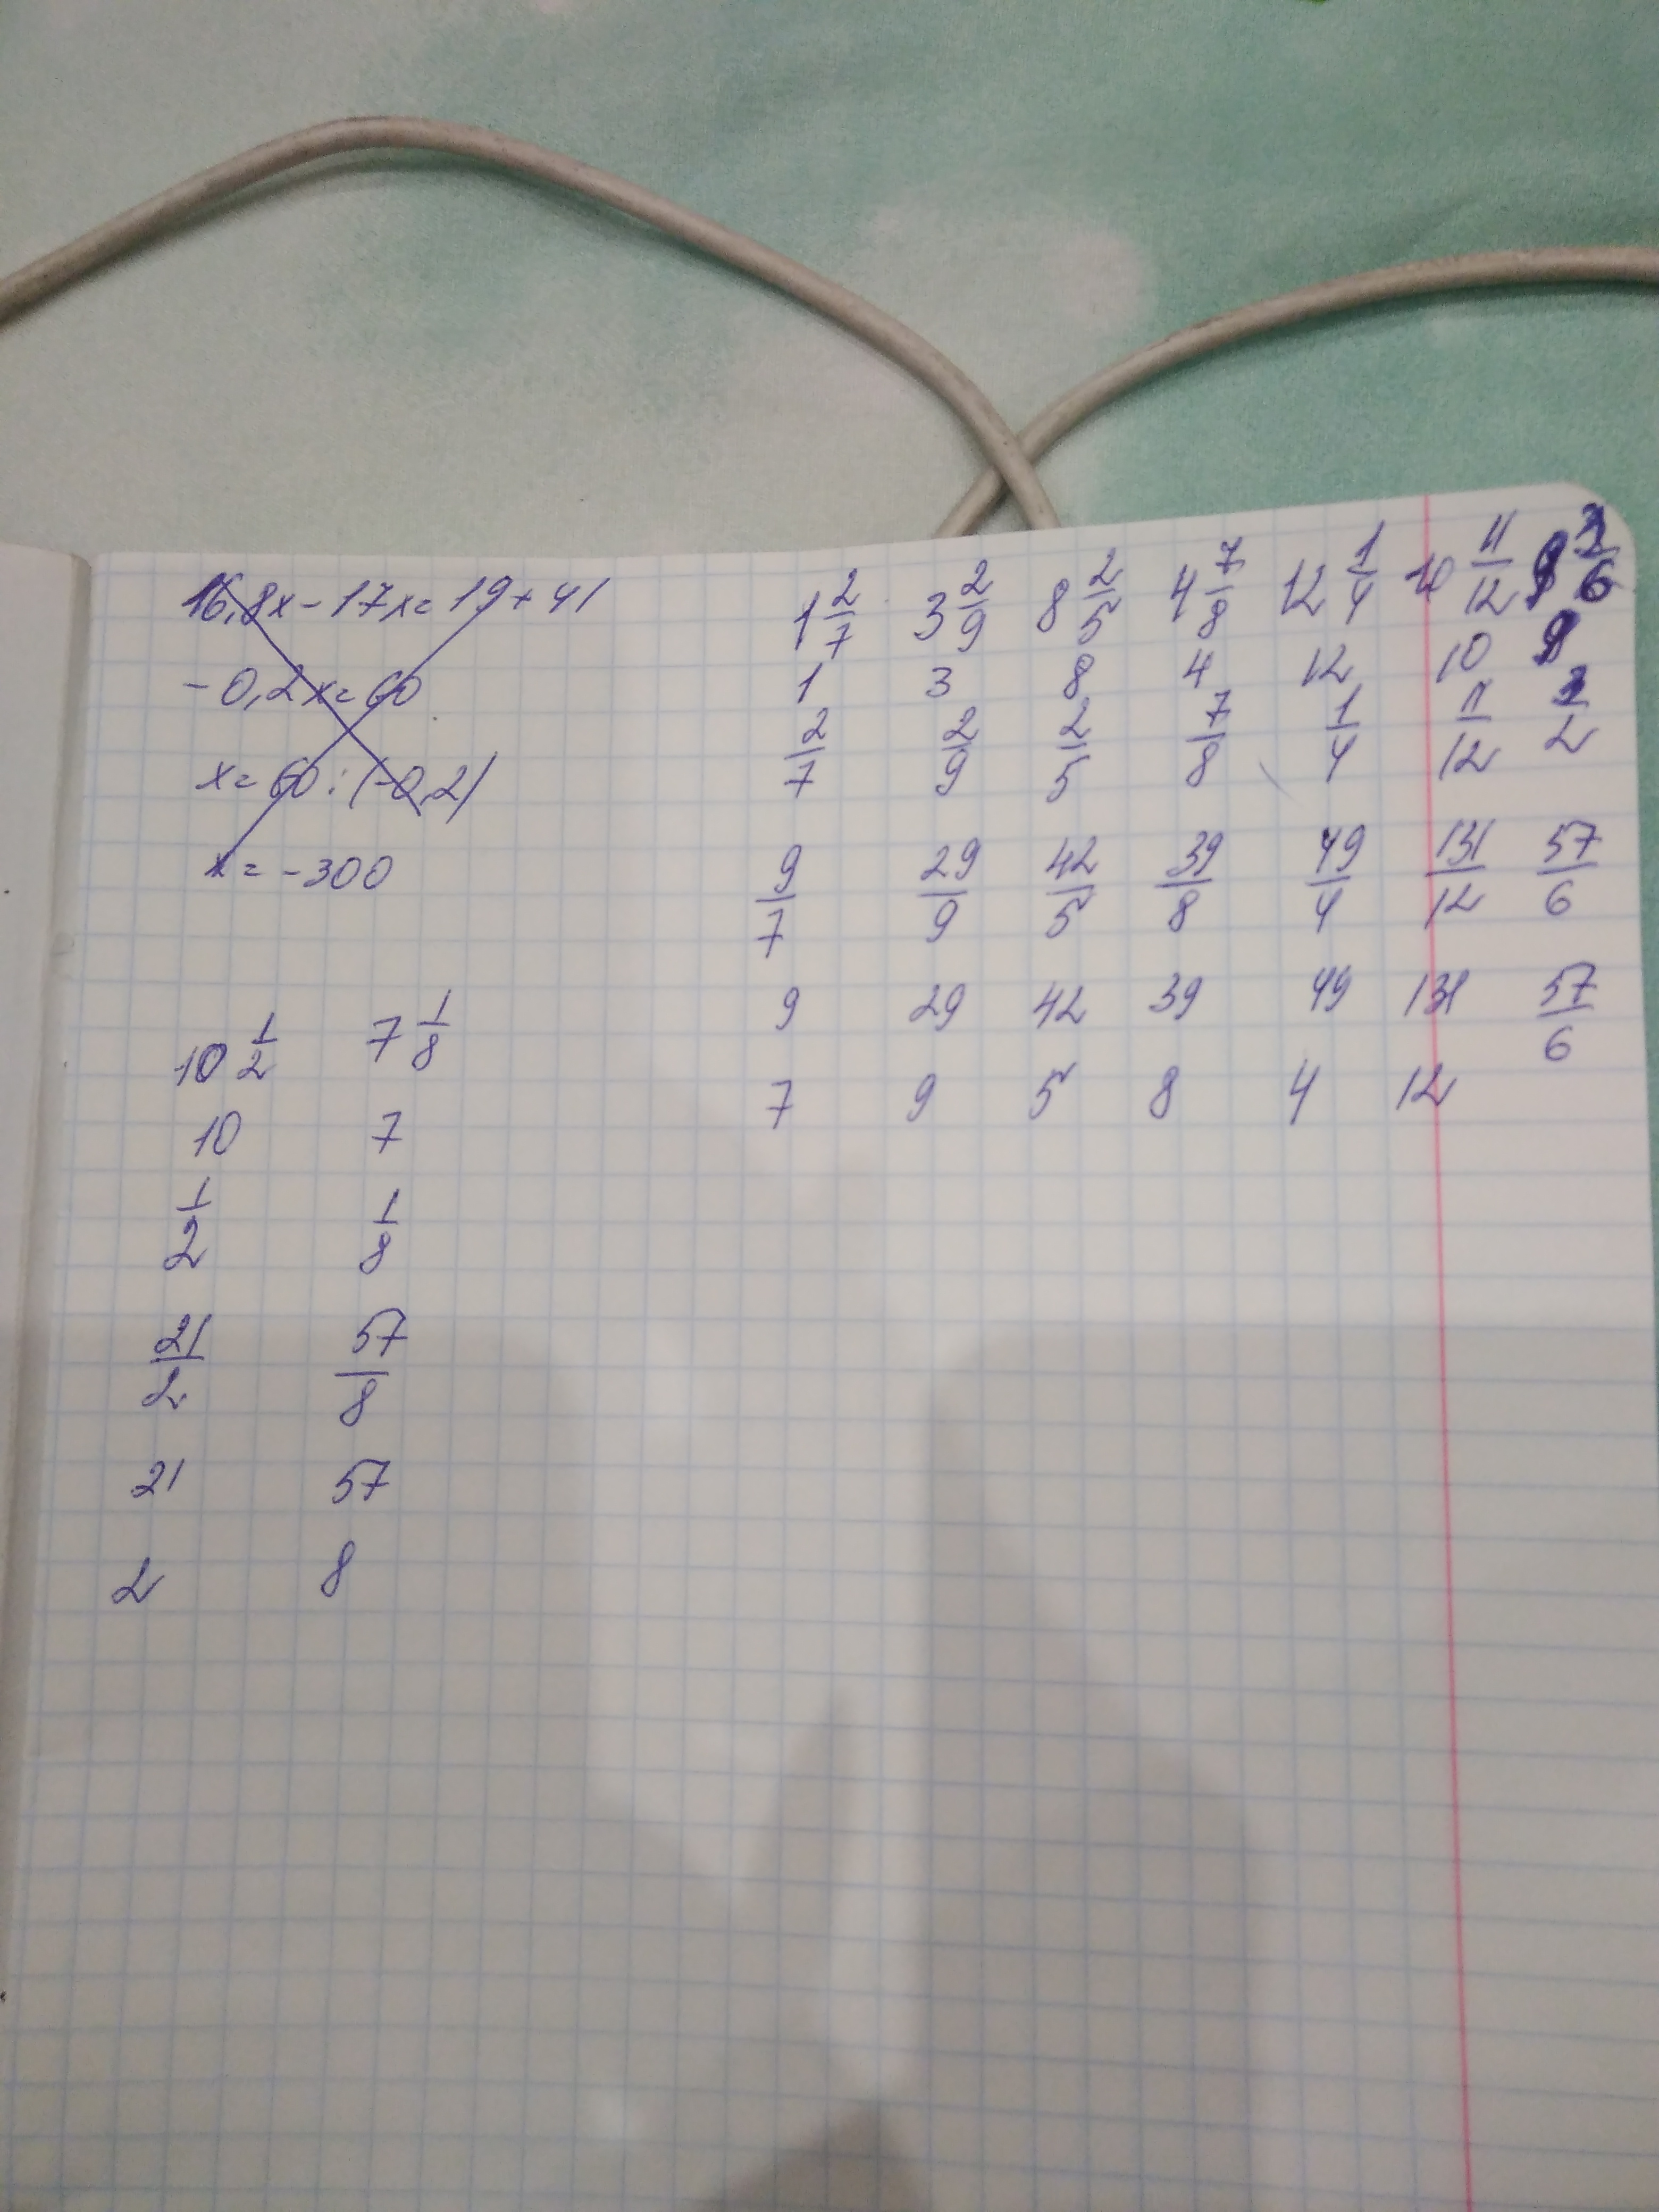 16,8x - 17x = 19 + 41
-0,2x = 60
x = 60 : (-0,2)
x = -300
10 1/2 7 1/8
10 7
1/2 1/8
21/2 57/8
21 57
2 8
1 2/7 3 2/9 8 2/5 4 7/8 12 1/4 10 11/12 9 /6
1 3 8 4 12 10 9
2/7 2/9 2/5 7/8 1/4 11/12 /2
9/7 29/9 42/5 39/8 49/4 131/12 57/6
9 29 42 39 49 131 57/6
7 9 5 8 4 12